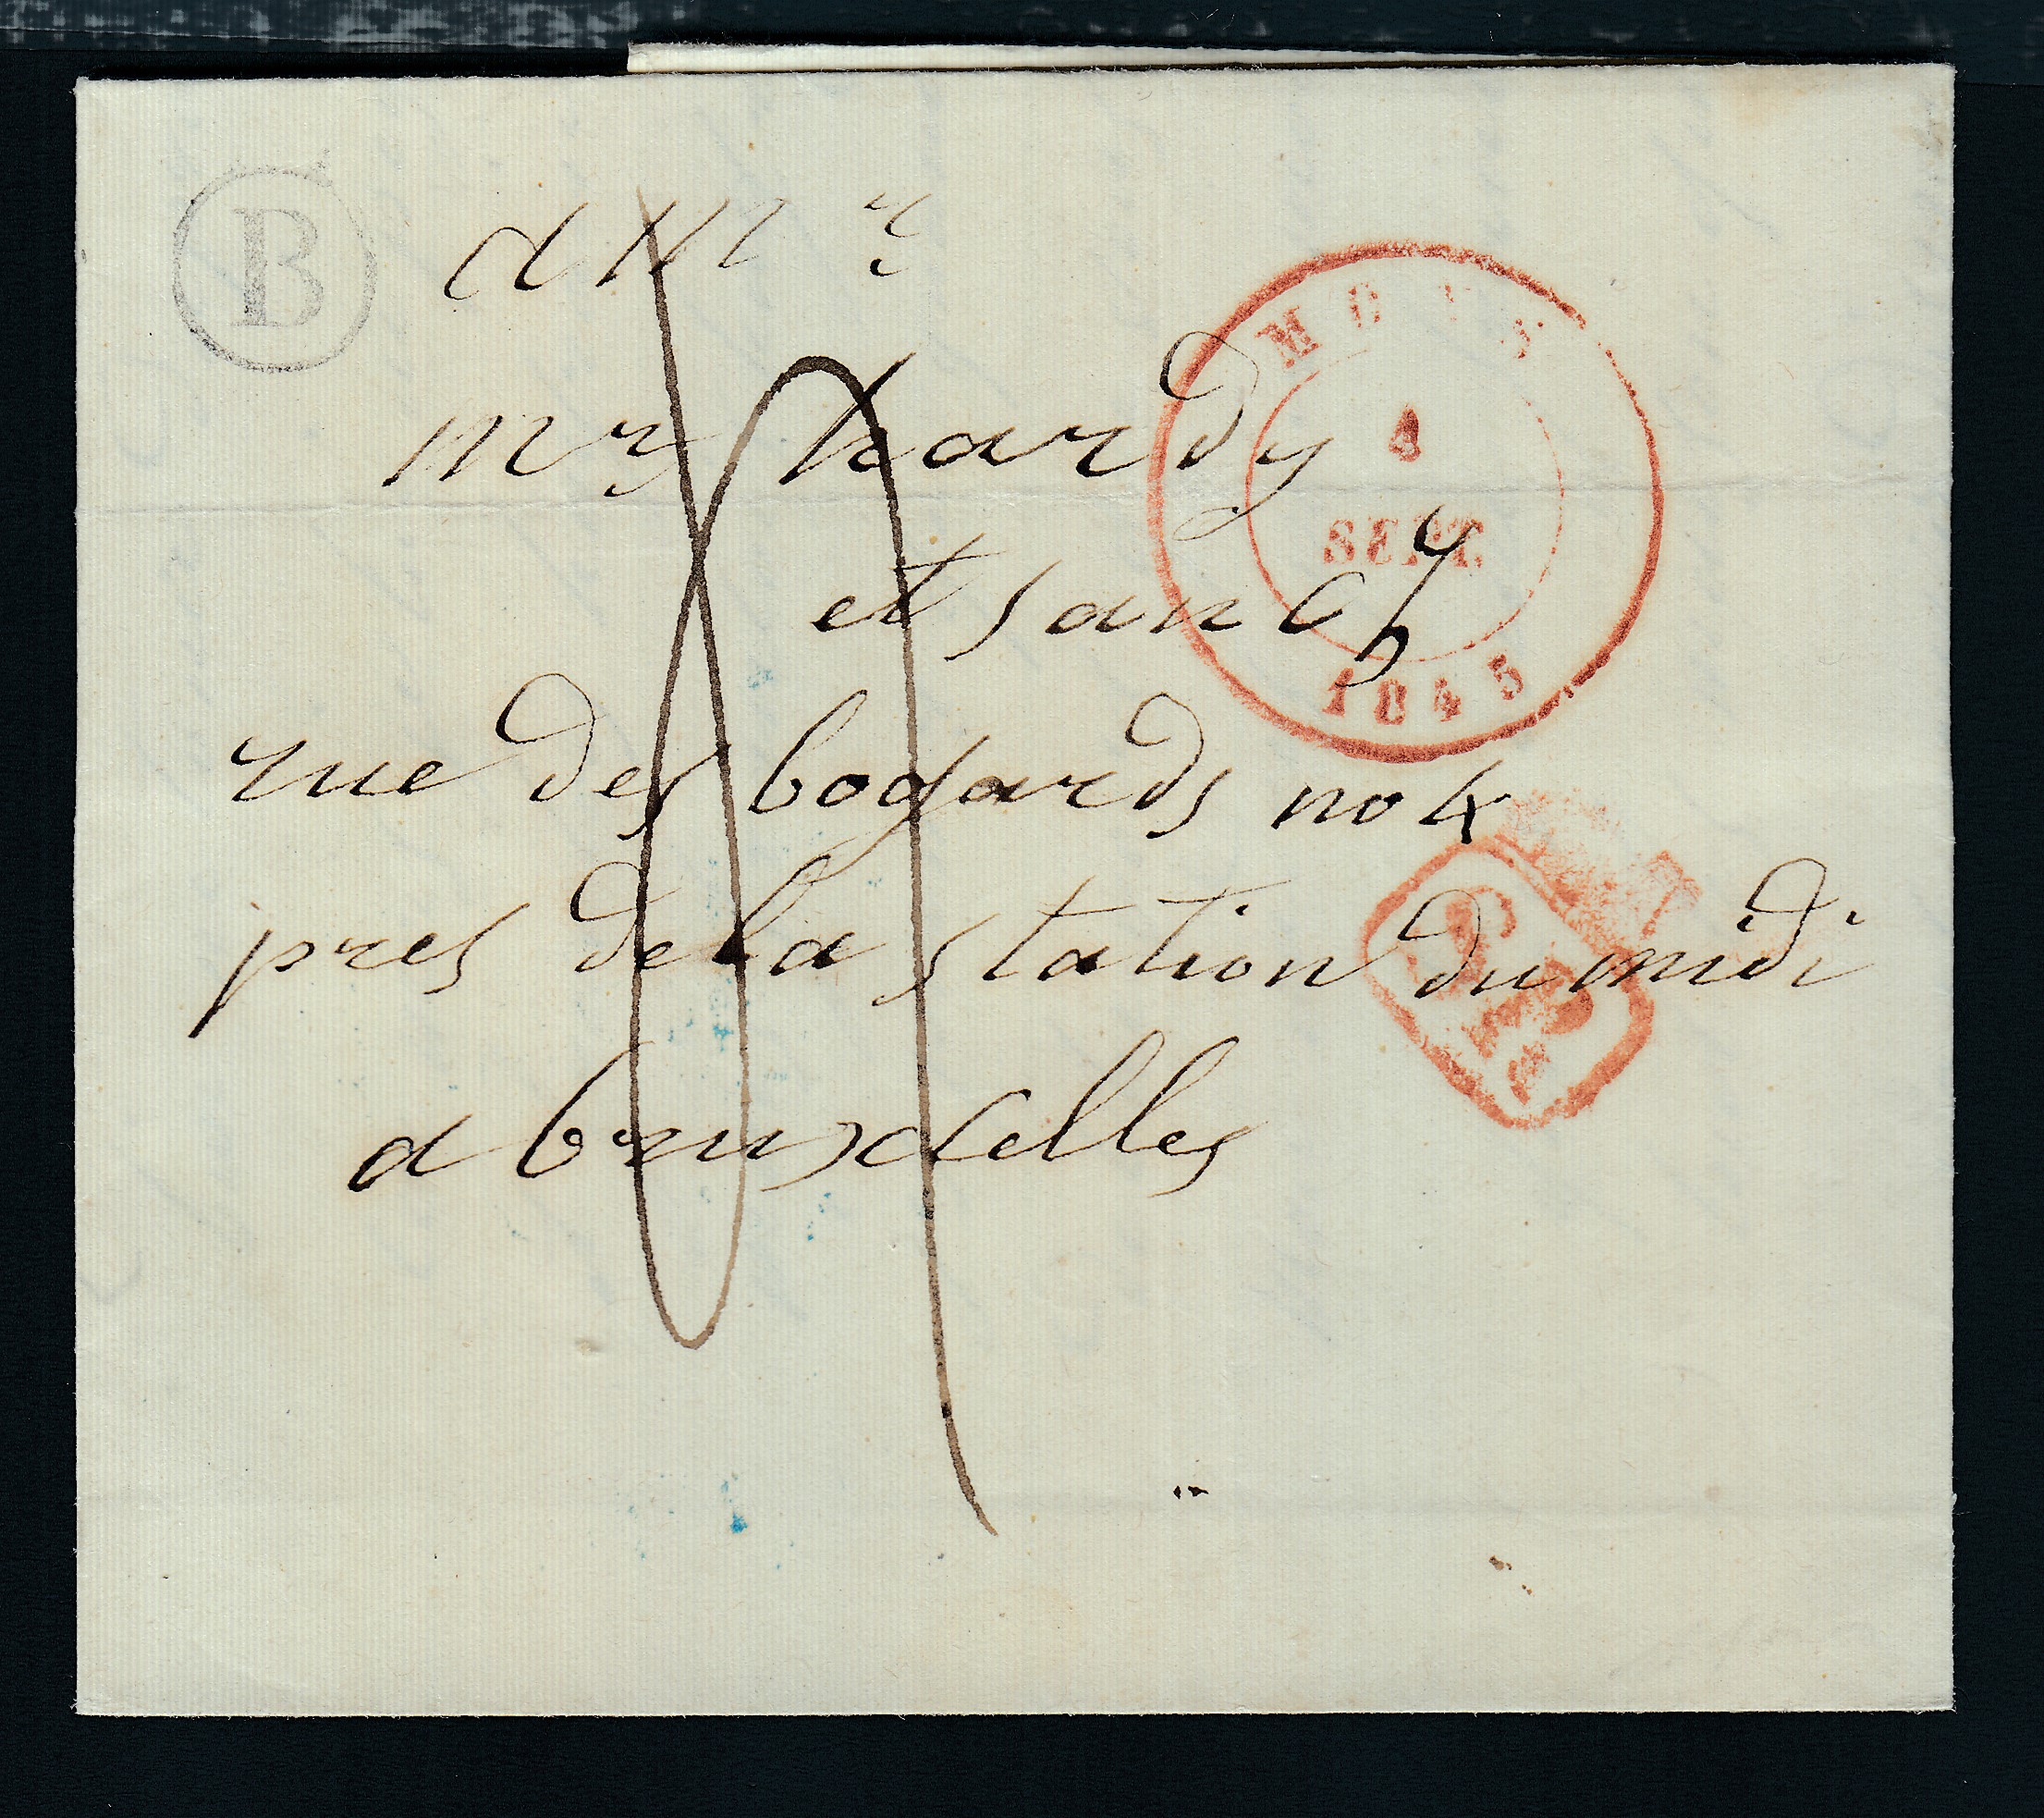 B
a Mr
MONS
4
SEPT.
1845
mr hardy
et san Cy
rue des bogards no 4
pres de la station du midi
SR
a bruxelles